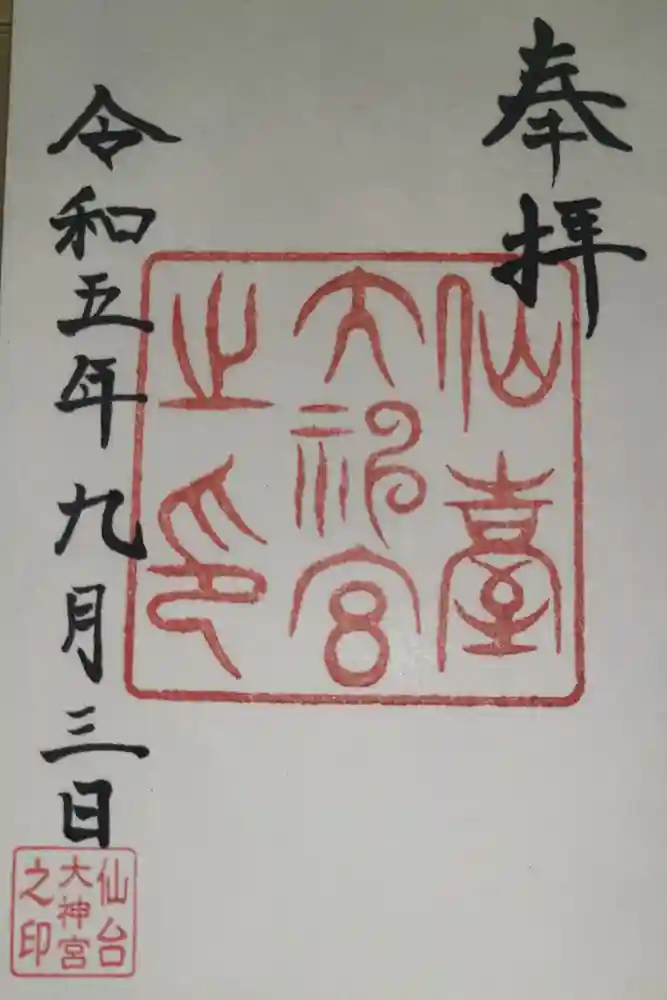 奉拝
仙臺
大神宮
之印
令和五年九月三日
仙台
大神宮
之印